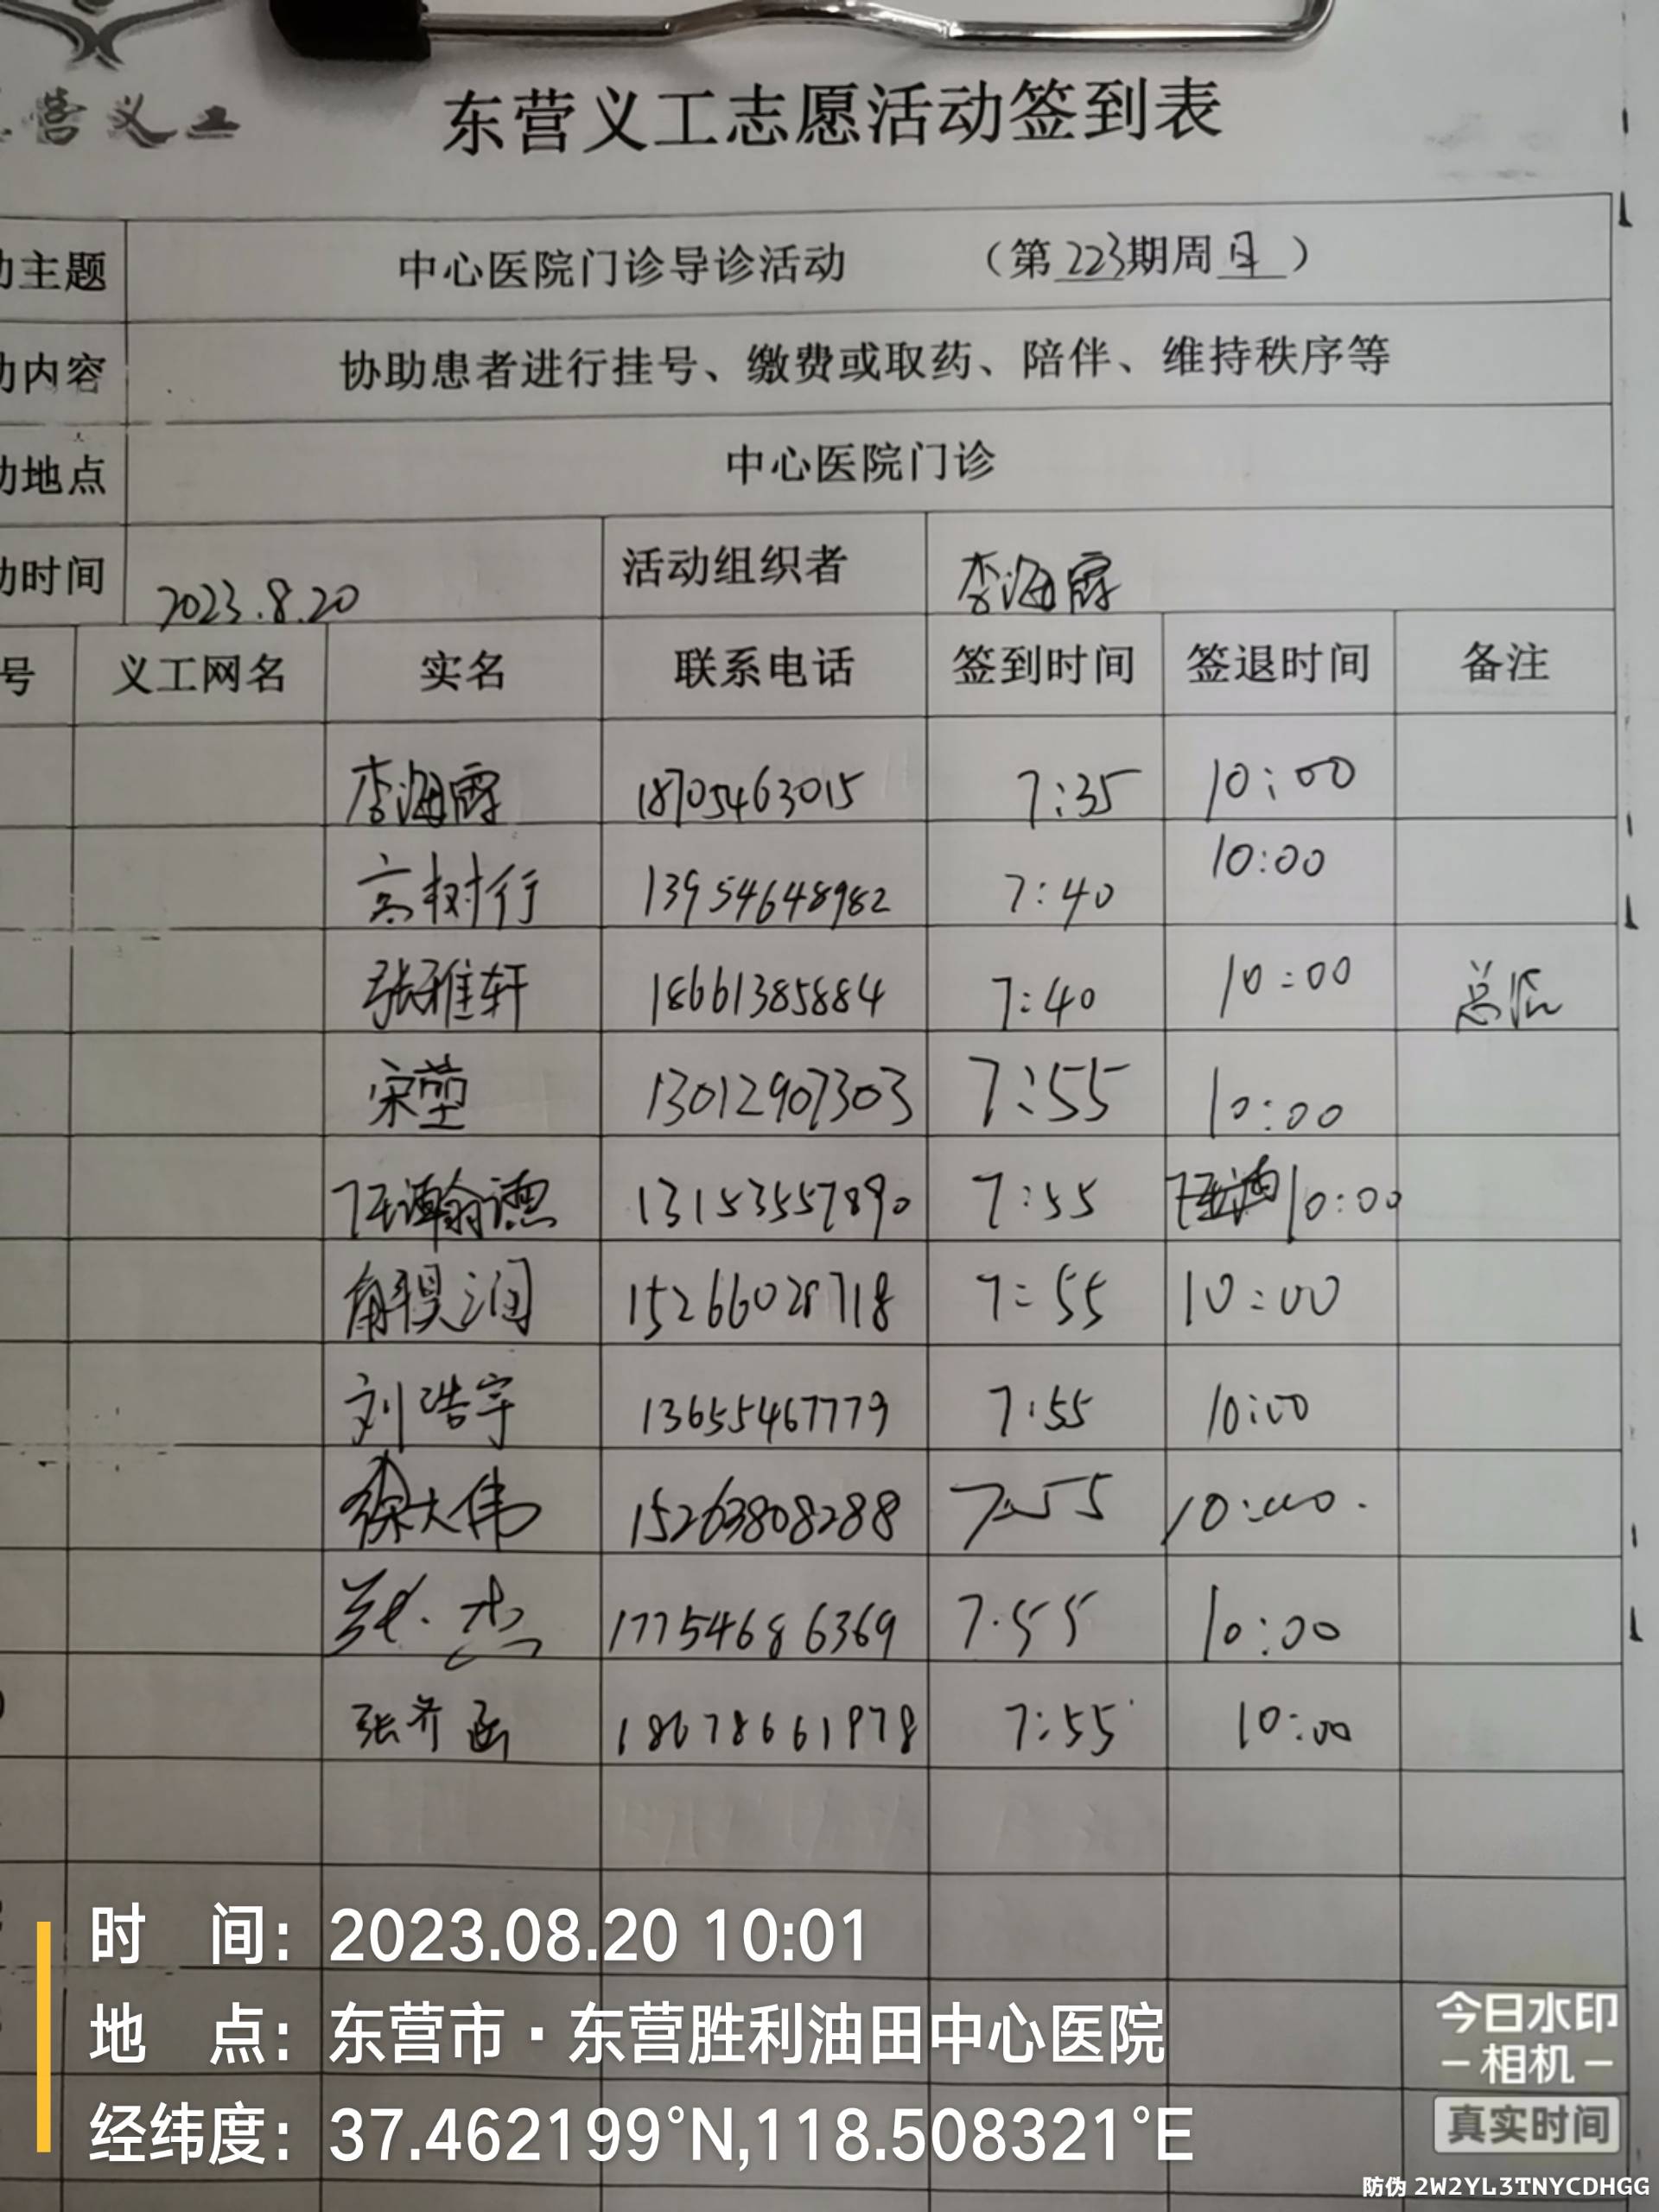 营义工
东营义工志愿活动签到表
主题 中心医院门诊导诊活动 （第223期周日）
内容 协助患者进行挂号、缴费或取药、陪伴、维持秩序等
地点 中心医院门诊
时间 2023.8.20 活动组织者 李海霞
号 义工网名 实名 联系电话 签到时间 签退时间 备注
李海霞 18705463015 7:35 10:00
高树行 13954648982 7:40 10:00
张雅轩 18661385884 7:40 10:00
宋堃 13012907303 7:55 10:00
13153557890 7:55 10:00
润 15266028718 7:55 10:00
刘浩宇 13655467779 7:55 10:00
徐大伟 15263808288 7:55 10:00
杰 17754686369 7.55 10:00
张齐函 18678661978 7:55 10:00
时 间：2023.08.20 10:01
地 点：东营市·东营胜利油田中心医院
经纬度：37.462199°N,118.508321°E
今日水印
相机
真实时间
防伪 2W2YL3TNYCDHGG